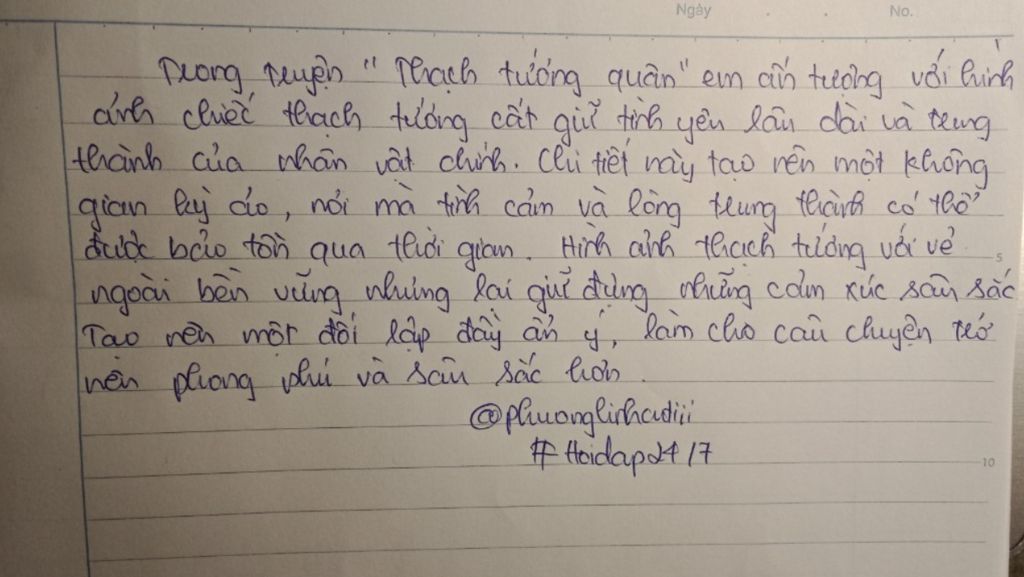 Ngày No.
Trong truyện "Thạch tướng quân" em ấn tượng với hình
ảnh chiếc thạch tướng cất giữ tình yêu lâu dài và trung
thành của nhân vật chính. Chi tiết này tạo nên một không
gian kỳ ảo, nơi mà tình cảm và lòng trung thành có thể
được bảo tồn qua thời gian. Hình ảnh thạch tướng với vẻ
5
ngoài bền vững nhưng lại giữ đựng những cảm xúc sâu sắc
Tạo nên một đối lập đầy ẩn ý, làm cho câu chuyện trở
nên phong phú và sâu sắc hơn.
@phuonglinhcudiii
#Hoidap24/7
10